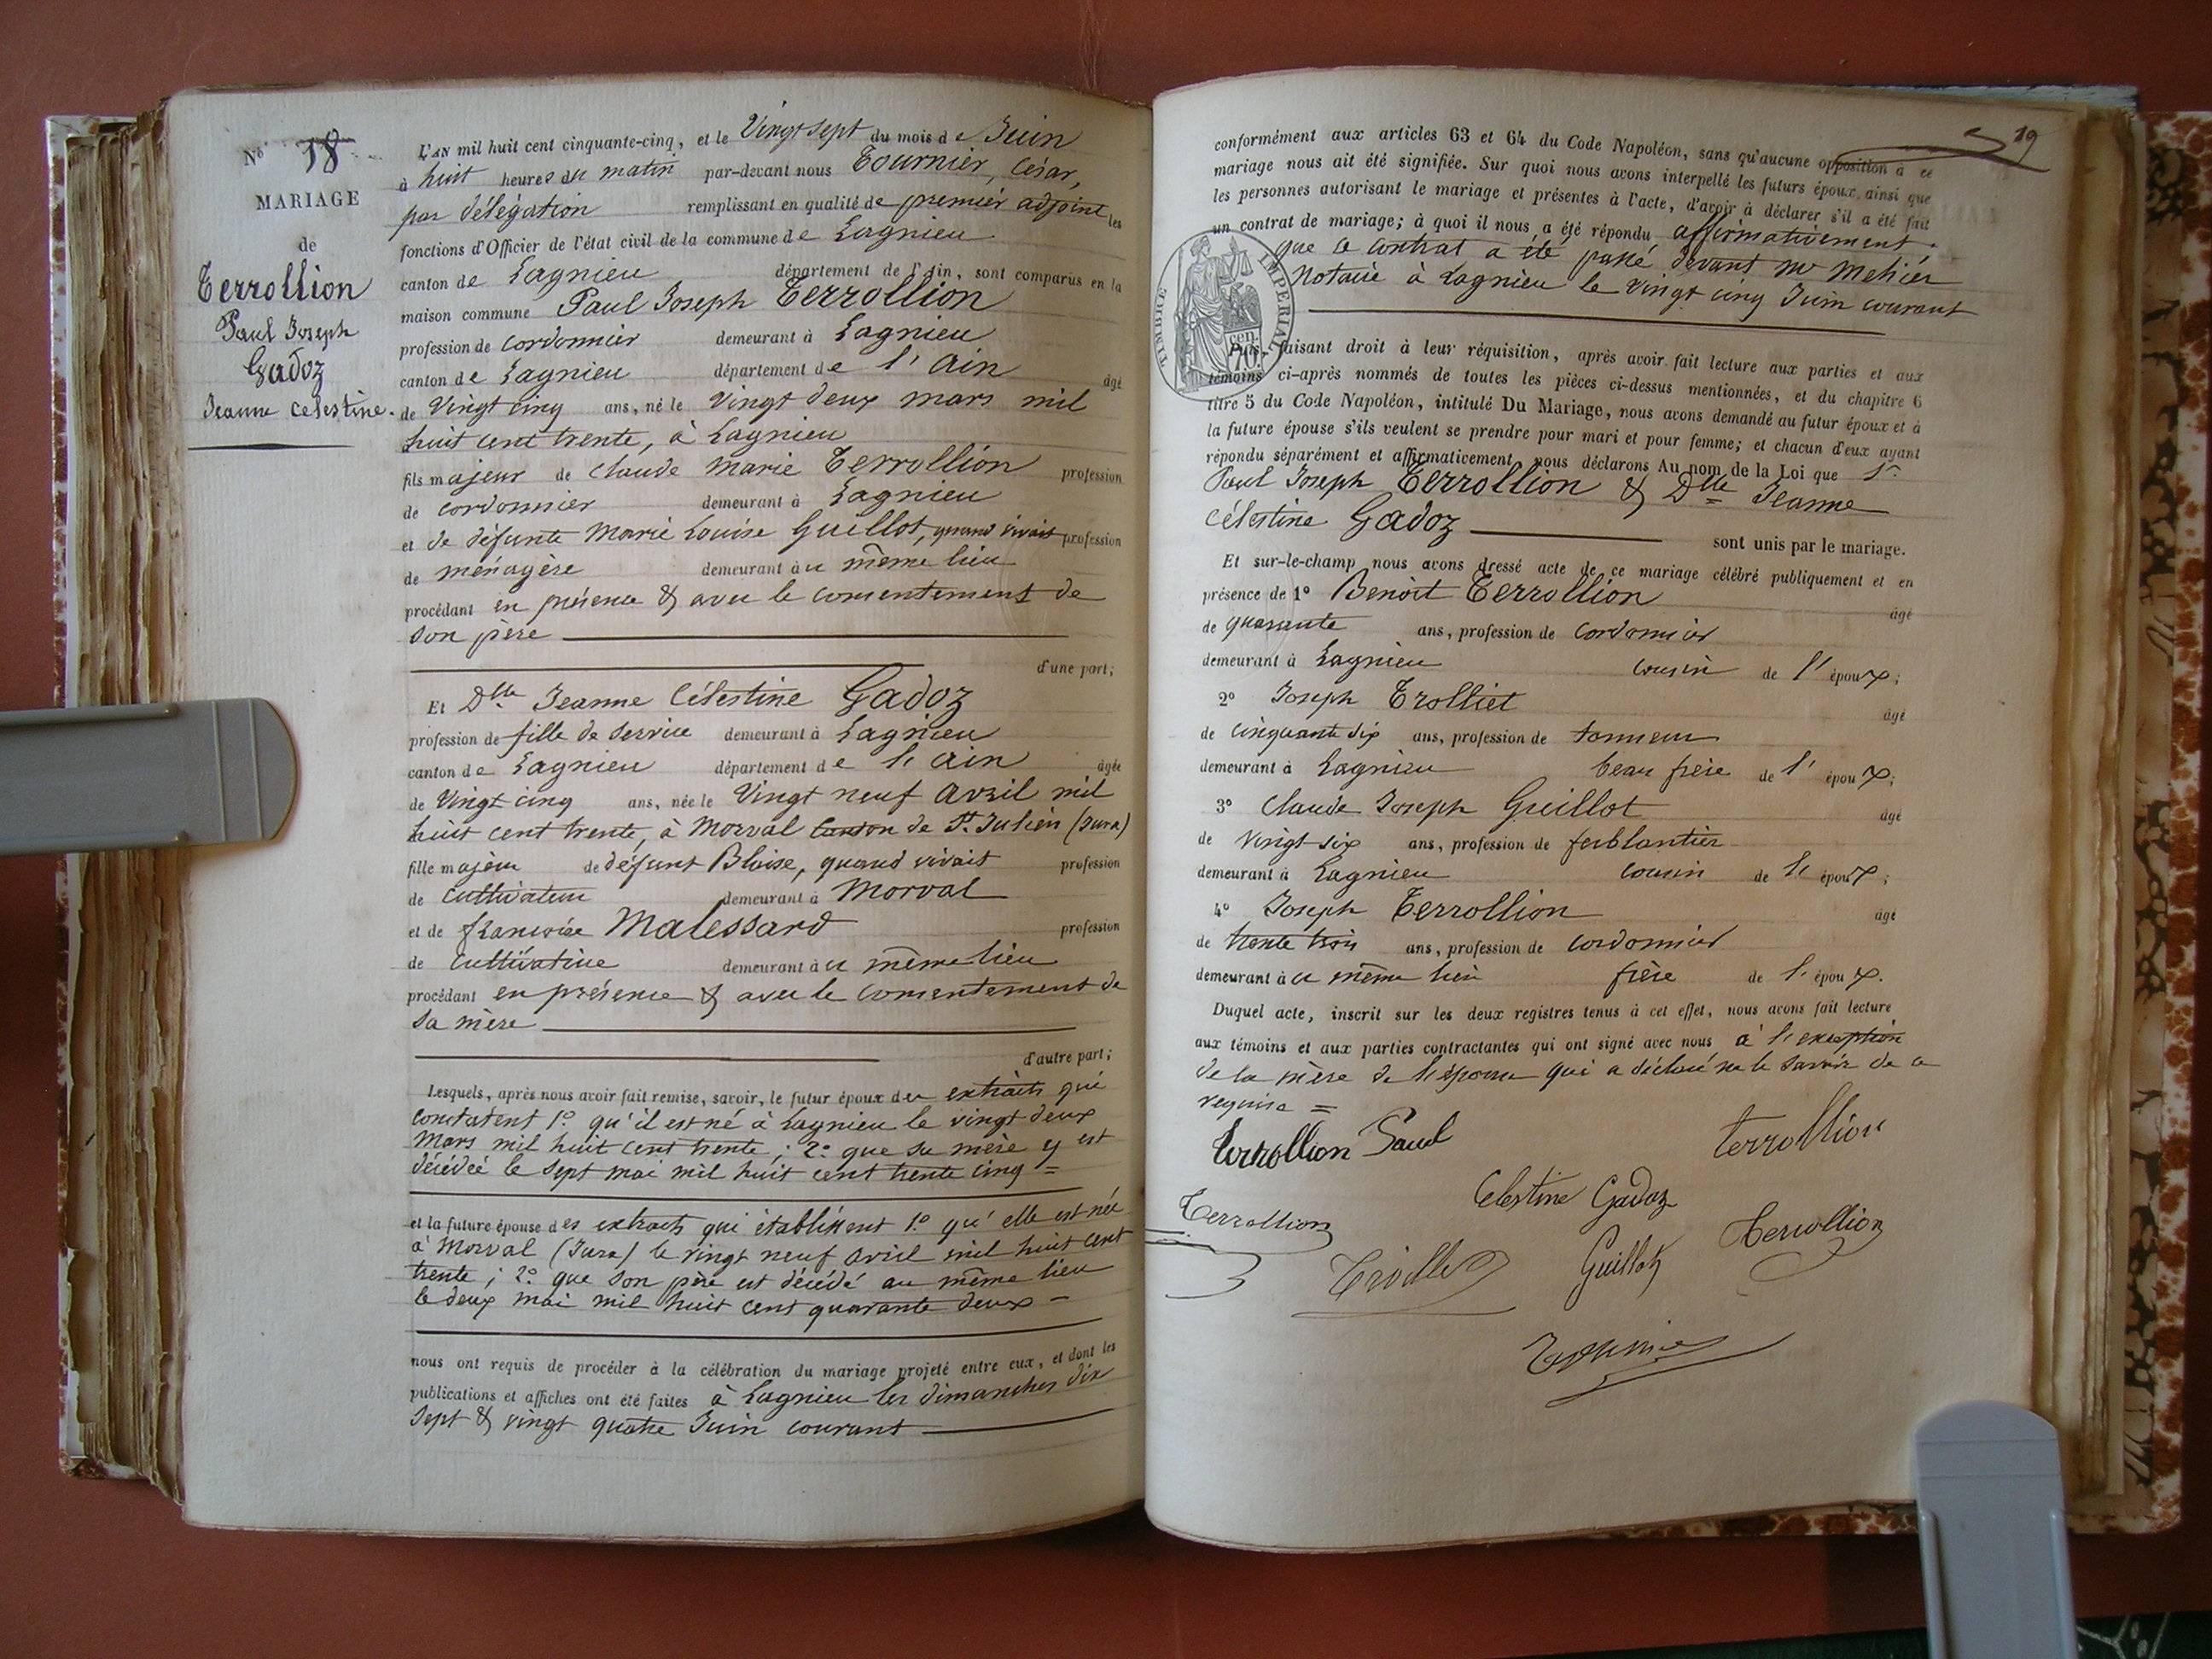 No 18
MARIAGE
de
Terrollion
Paul Joseph
Gadoz
Jeanne Celestine.
L'AN mil huit cent cinquante-cinq, et le Vingt sept du mois de Juin
à huit heures du matin par-devant nous Tournier, César,
par délégation remplissant en qualité de premier adjoint les
fonctions d'Officier de l'état civil de la commune de Lagnieu
canton de Lagnieu département de l'Ain, sont comparus en la
maison commune Paul Joseph Terrollion
profession de cordonnier demeurant à Lagnieu
canton de Lagnieu département de l'Ain âgé
de Vingt cinq ans, né le Vingt deux mars mil
huit cent trente, à Lagnieu
fils majeur de Claude Marie Terrollion profession
de cordonnier demeurant à Lagnieu
et de défunte Marie Louise Guillot, quand vivait profession
de ménagère demeurant au même lieu
procédant en présence & avec le consentement de
son père
d'une part;
Et Dlle Jeanne Célestine Gadoz
profession de fille de service demeurant à Lagnieu
canton de Lagnieu département de l'Ain âgée
de Vingt cinq ans, née le Vingt neuf Avril mil
huit cent trente, à Morval canton de St. Julien (Jura)
fille majeure de défunt Blaise, quand vivait profession
de cultivateur demeurant à Morval
et de françoise Malessard profession
de cultivatrice demeurant au même lieu
procédant en présence & avec le consentement de
sa mère
d'autre part;
Lesquels, après nous avoir fait remise, savoir, le futur époux des extraits qui
constatent 1º. qu'il est né à Lagnieu le vingt deux
Mars mil huit cent trente; 2º. que sa mère y est
décédée le sept mai mil huit cent trente cinq =
et la future épouse des extraits qui établissent 1º. qu'elle est née
à Morval (Jura) le vingt neuf avril mil huit cent
trente; 2º. que son père est décédé au même lieu
le deux mai mil huit cent quarante deux -
nous ont requis de procéder à la célébration du mariage projeté entre eux, et dont les
publications et affiches ont été faites à Lagnieu les dimanches dix
sept & vingt quatre Juin courant
19
conformément aux articles 63 et 64 du Code Napoléon, sans qu'aucune opposition à ce
mariage nous ait été signifiée. Sur quoi nous avons interpellé les futurs époux, ainsi que
les personnes autorisant le mariage et présentes à l'acte, d'avoir à déclarer s'il a été fait
un contrat de mariage; à quoi il nous a été répondu affirmativement.
que le contrat a été passé devant Me Metier
Notaire à Lagnieu le vingt cinq Juin courant
TIMBRE IMPERIAL
70 cen
Puis, faisant droit à leur réquisition, après avoir fait lecture aux parties et aux
témoins ci-après nommés de toutes les pièces ci-dessus mentionnées, et du chapitre 6
titre 5 du Code Napoléon, intitulé Du Mariage, nous avons demandé au futur époux et à
la future épouse s'ils veulent se prendre pour mari et pour femme; et chacun d'eux ayant
répondu séparément et affirmativement, nous déclarons Au nom de la Loi que Sr.
Paul Joseph Terrollion & Dlle Jeanne
Célestine Gadoz sont unis par le mariage.
Et sur-le-champ nous avons dressé acte de ce mariage célébré publiquement et en
présence de 1º Benoît Terrollion âgé
de quarante ans, profession de cordonnier
demeurant à Lagnieu cousin de l'époux;
2º Joseph Trolliet âgé
de cinquante six ans, profession de tanneur
demeurant à Lagnieu beau frère de l'époux;
3º Claude Joseph Guillot âgé
de vingt six ans, profession de ferblantier
demeurant à Lagnieu cousin de l'époux;
4º Joseph Terrollion âgé
de trente trois ans, profession de cordonnier
demeurant au même lieu frère de l'époux.
Duquel acte, inscrit sur les deux registres tenus à cet effet, nous avons fait lecture
aux témoins et aux parties contractantes qui ont signé avec nous à l'exception
de la mère de l'épouse qui a déclaré ne le savoir de ce
requise =
Terrollion Paul
terrollion
Celestine Gadoz
Terrollion
Terrollion
Guillot